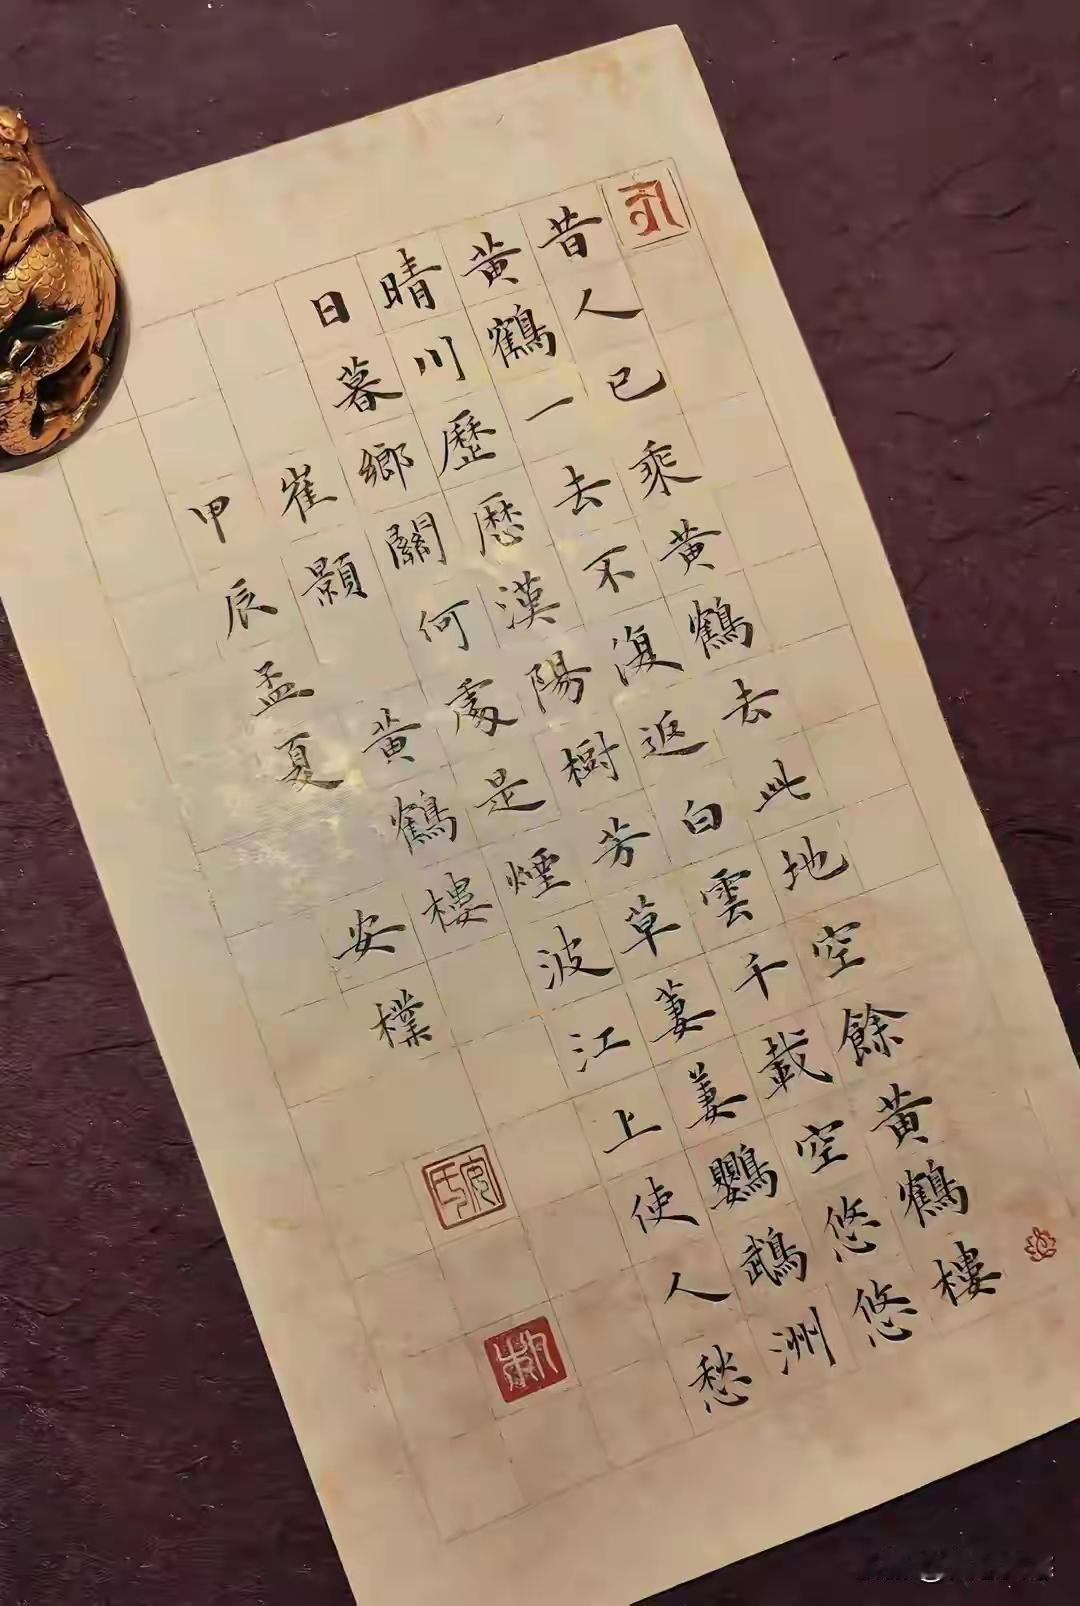 昔人已乘黃鶴去此地空餘黃鶴樓
黃鶴一去不復返白雲千載空悠悠
晴川歷歷漢陽樹芳草萋萋鸚鵡洲
日暮鄉關何處是煙波江上使人愁
崔顥 黃鶴樓
甲辰孟夏 安樸